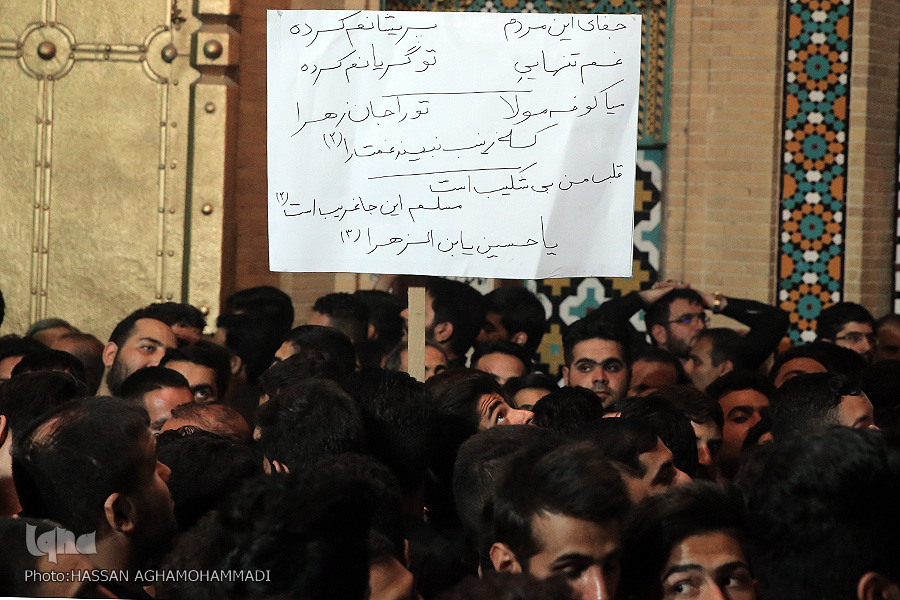 جفای این مردم پریشانم کرده
غم تنهایی تو گریانم کرده
میا کوفه مولا تو را جان زهرا
که زینب نبیند غمت را (۲)
قلب من بی شکیب است
مسلم این جا غریب است (۲)
یا حسین یابن الزهرا (۳)
iqna
Photo:HASSAN AGHAMOHAMMADI